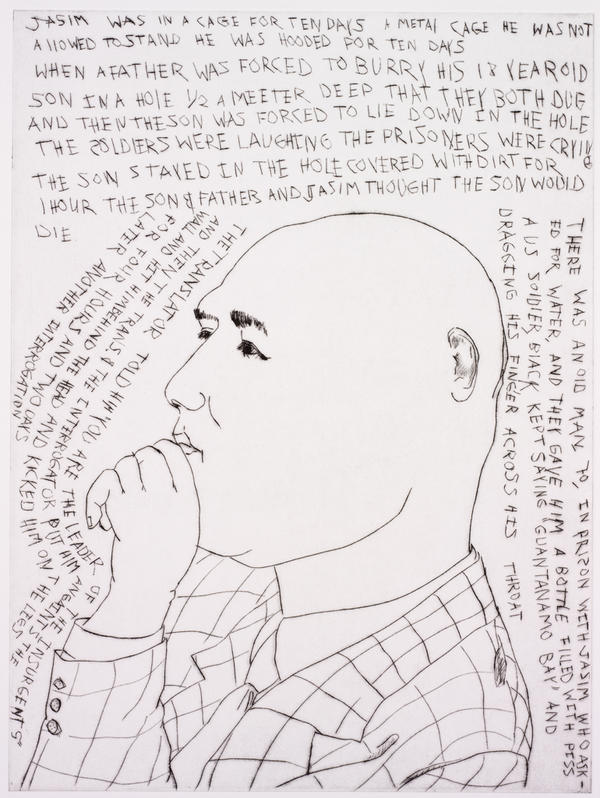 JASIM WAS IN A CAGE FOR TEN DAYS A METAL CAGE HE WAS NOT
ALLOWED TO STAND HE WAS HOODED FOR TEN DAYS
WHEN A FATHER WAS FORCED TO BURRY HIS 18 YEAR OLD
SON IN A HOLE 1/2 A MEETER DEEP THAT THEY BOTH DUG
AND THEN THE SON WAS FORCED TO LIE DOWN IN THE HOLE
THE SOLDIERS WERE LAUGHING THE PRISONERS WERE CRYING
THE SON STAYED IN THE HOLE COVERED WITH DIRT FOR
1 HOUR THE SON & FATHER AND JASIM THOUGHT THE SON WOULD
DIE
THE TRANSLATOR TOLD HIM "YOU ARE THE LEADER OF THE INSURGENTS"
AND THEN THE TRANS & THE INTERROGATOR PUT HIM AGAINST THE
WALL AND HIT HIM BEHIND THE HEAD AND KICKED HIM ON THE LEGS
FOR FOUR HOURS AND TWO DAYS
LATER ANOTHER INTERROGATION
THERE WAS AN OLD MAN 70, IN PRIZON WITH JASIM WHO ASK-
ED FOR WATER, AND THEY GAVE HIM A BOTTLE FILLED WITH PISS
A US SOLDIER BLACK KEPT SAYING "GUANTANAMO BAY" AND
DRAGGING HIS FINGER ACROSS HIS THROAT